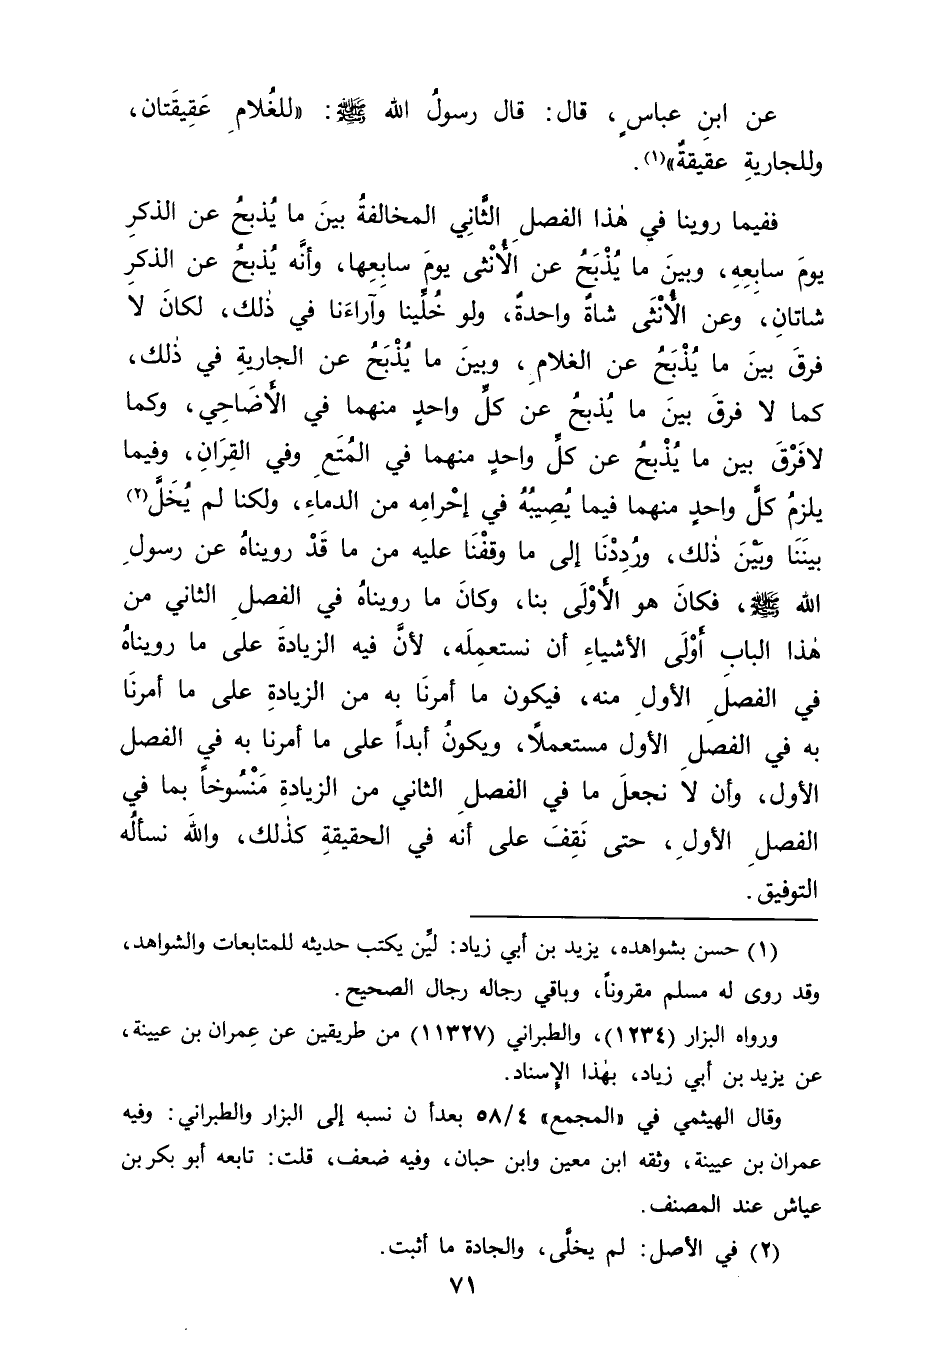 عن ابنِ عباسٍ، قال: قال رسولُ الله ﷺ: «للغُلامِ عَقِيقَتان،
وللجاريةِ عقيقةٌ»(١).
ففيما روينا في هٰذا الفصلِ الثَّانِي المخالفةُ بينَ ما يُذبحُ عن الذكرِ
يومَ سابِعِهِ، وبينَ ما يُذْبَحُ عن الأُنْثى يومَ سابِعِها، وأنَّه يُذبحُ عن الذكرِ
شاتانِ، وعن الأُنْثَى شاةٌ واحدةٌ، ولو خُلِّينا وآراءَنا في ذٰلك، لكانَ لا
فرقَ بينَ ما يُذْبَحُ عن الغلامِ، وبينَ ما يُذْبَحُ عن الجاريةِ في ذٰلك،
كما لا فرقَ بينَ ما يُذبحُ عن كلِّ واحدٍ منهما في الأَضَاحِي، وكما
لافَرْقَ بين ما يُذْبحُ عن كلِّ واحدٍ منهما في المُتَعِ وفي القِرَانِ، وفيما
يلزمُ كلَّ واحدٍ منهما فيما يُصِيبُهُ في إحْرامِه من الدماءِ، ولكنا لم يُخَلَّ(٢)
بينَنَا وبَيْنَ ذٰلك، ورُدِدْنَا إلى ما وقفْنَا عليه من ما قَدْ رويناهُ عن رسولِ
الله ﷺ، فكانَ هو الأَوْلَى بنا، وكانَ ما رويناهُ في الفصلِ الثاني من
هٰذا البابِ أَوْلَى الأشياءِ أن نستعمِلَه، لأنَّ فيه الزيادةَ على ما رويناهُ
في الفصلِ الأولِ منه، فيكون ما أمرنَا به من الزيادةِ على ما أمرنَا
به في الفصلِ الأول مستعملاً، ويكونُ أبداً على ما أمرنا به في الفصل
الأول، وأن لا نجعلَ ما في الفصلِ الثاني من الزيادةِ مَنْسُوخاً بما في
الفصلِ الأولِ، حتى نَقِفَ على أنه في الحقيقةِ كذٰلك، واللهَ نسألُه
التوفيق.
(١) حسن بشواهده، يزيد بن أبي زياد: ليِّن يكتب حديثه للمتابعات والشواهد،
وقد روى له مسلم مقروناً، وباقي رجاله رجال الصحيح.
ورواه البزار (١٢٣٤)، والطبراني (١١٣٢٧) من طريقين عن عِمران بن عيينة،
عن يزيد بن أبي زياد، بهٰذا الإسناد.
وقال الهيثمي في «المجمع» ٥٨/٤ بعدأ ن نسبه إلى البزار والطبراني: وفيه
عمران بن عيينة، وثقه ابن معين وابن حبان، وفيه ضعف، قلت: تابعه أبو بكر بن
عياش عند المصنف.
(٢) في الأصل: لم يخلَّى، والجادة ما أثبت.
٧١